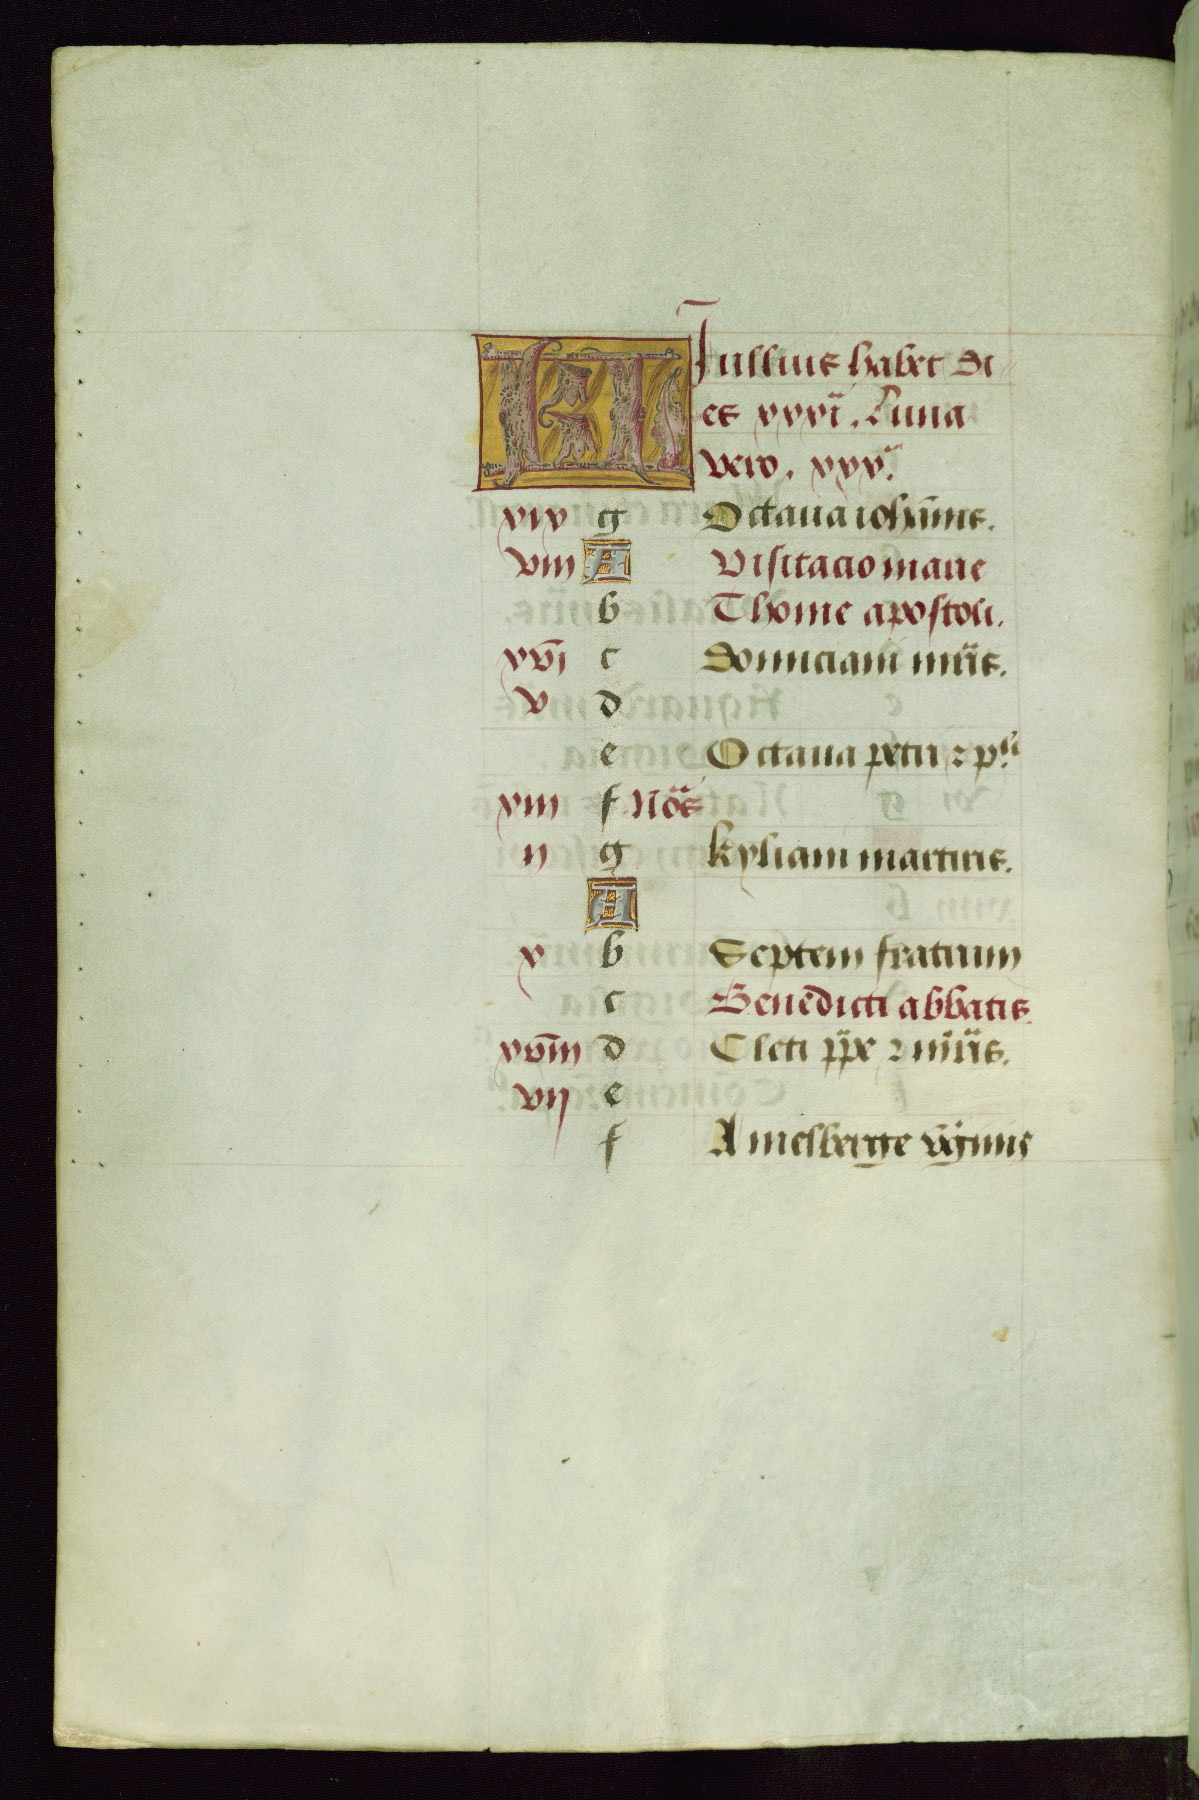 KL Jullius habet di
es xxxi. Luna
vero. xxx.
xix g Octava ioha̅nis.
viii A Visitacio marie
b Thome apostoli.
xvi c
v d
e Octava petri ⁊ pli
xiii f Nōs
ii g kyliani martiris.
A
x b Septem fratrum
c Benedicti abbatis
xviii d Cleti ppe ⁊ mr̄is.
vii e
f Amelberge v̄ginis